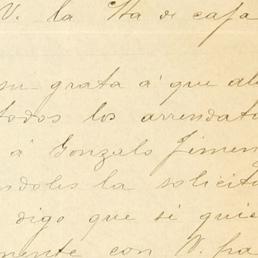 V. la Sta de casa
su grata á que al
todos los arrendat
á Gonzalo Jimen
ndoles la solicit
digo que si quie
mente con V. pa